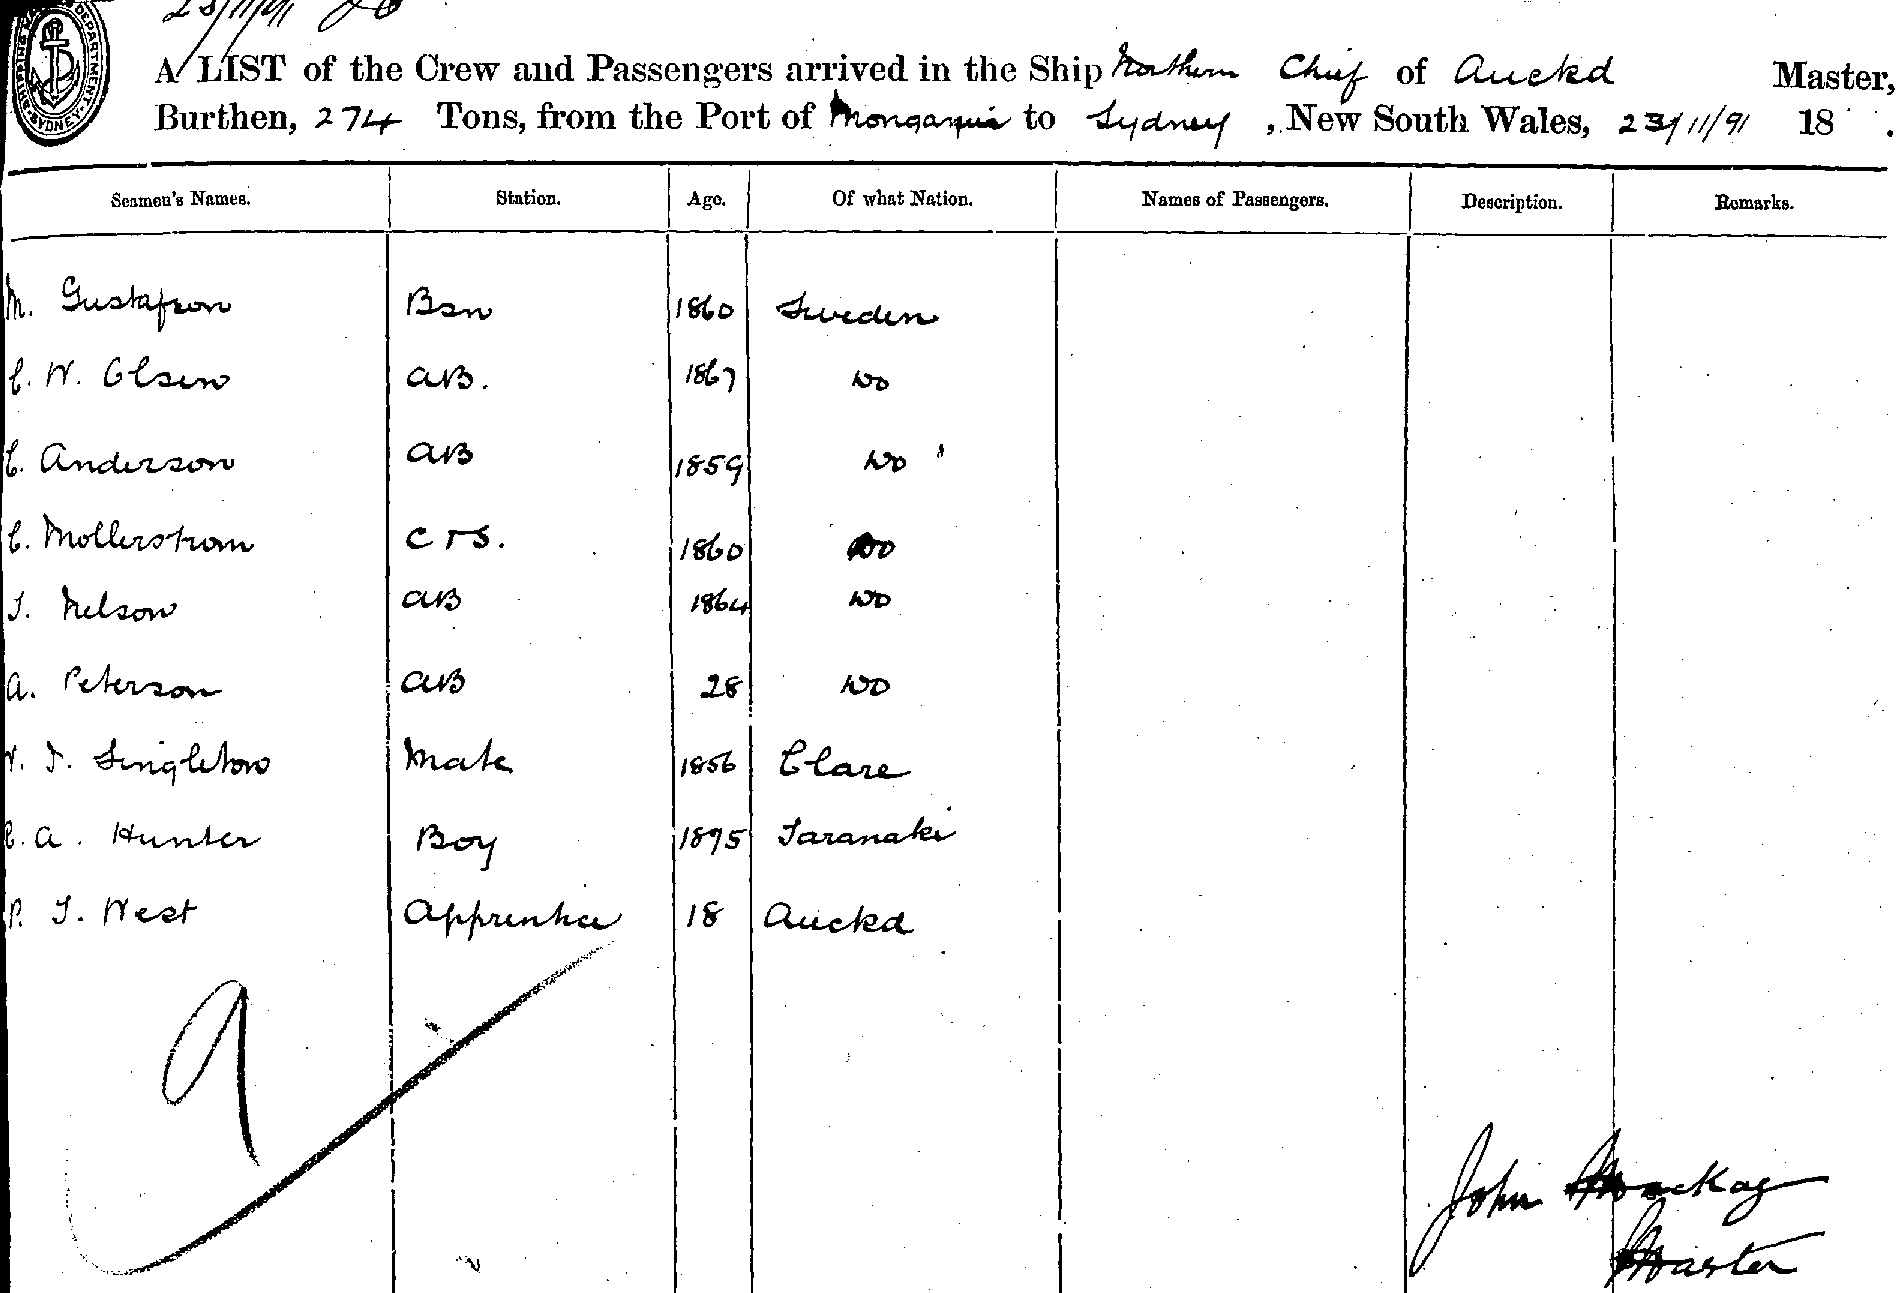 23/11/91
SHIPPING MASTER'S DEPARTMENT SYDNEY
A LIST of the Crew and Passengers arrived in the Ship Northern Chief of Auckd Master,
Burthen, 274 Tons, from the Port of Monganui to Sydney, New South Wales, 23/11/91 18 .
Seamen's Names. Station. Age. Of what Nation. Names of Passengers. Description. Remarks.
M. Gustafson Bsn 1860 Sweden
C. W. Olsen AB. 1867 Do
C. Anderson AB 1859 Do
C. Mollerstrom C & S. 1860 Do
T. Nelson AB 1864 Do
A. Peterson AB 28 Do
T. Singleton Mate 1856 Clare
A. Hunter Boy 1875 Taranaki
P. T. West Apprentice 18 Auckd
9
John Mackay
Master